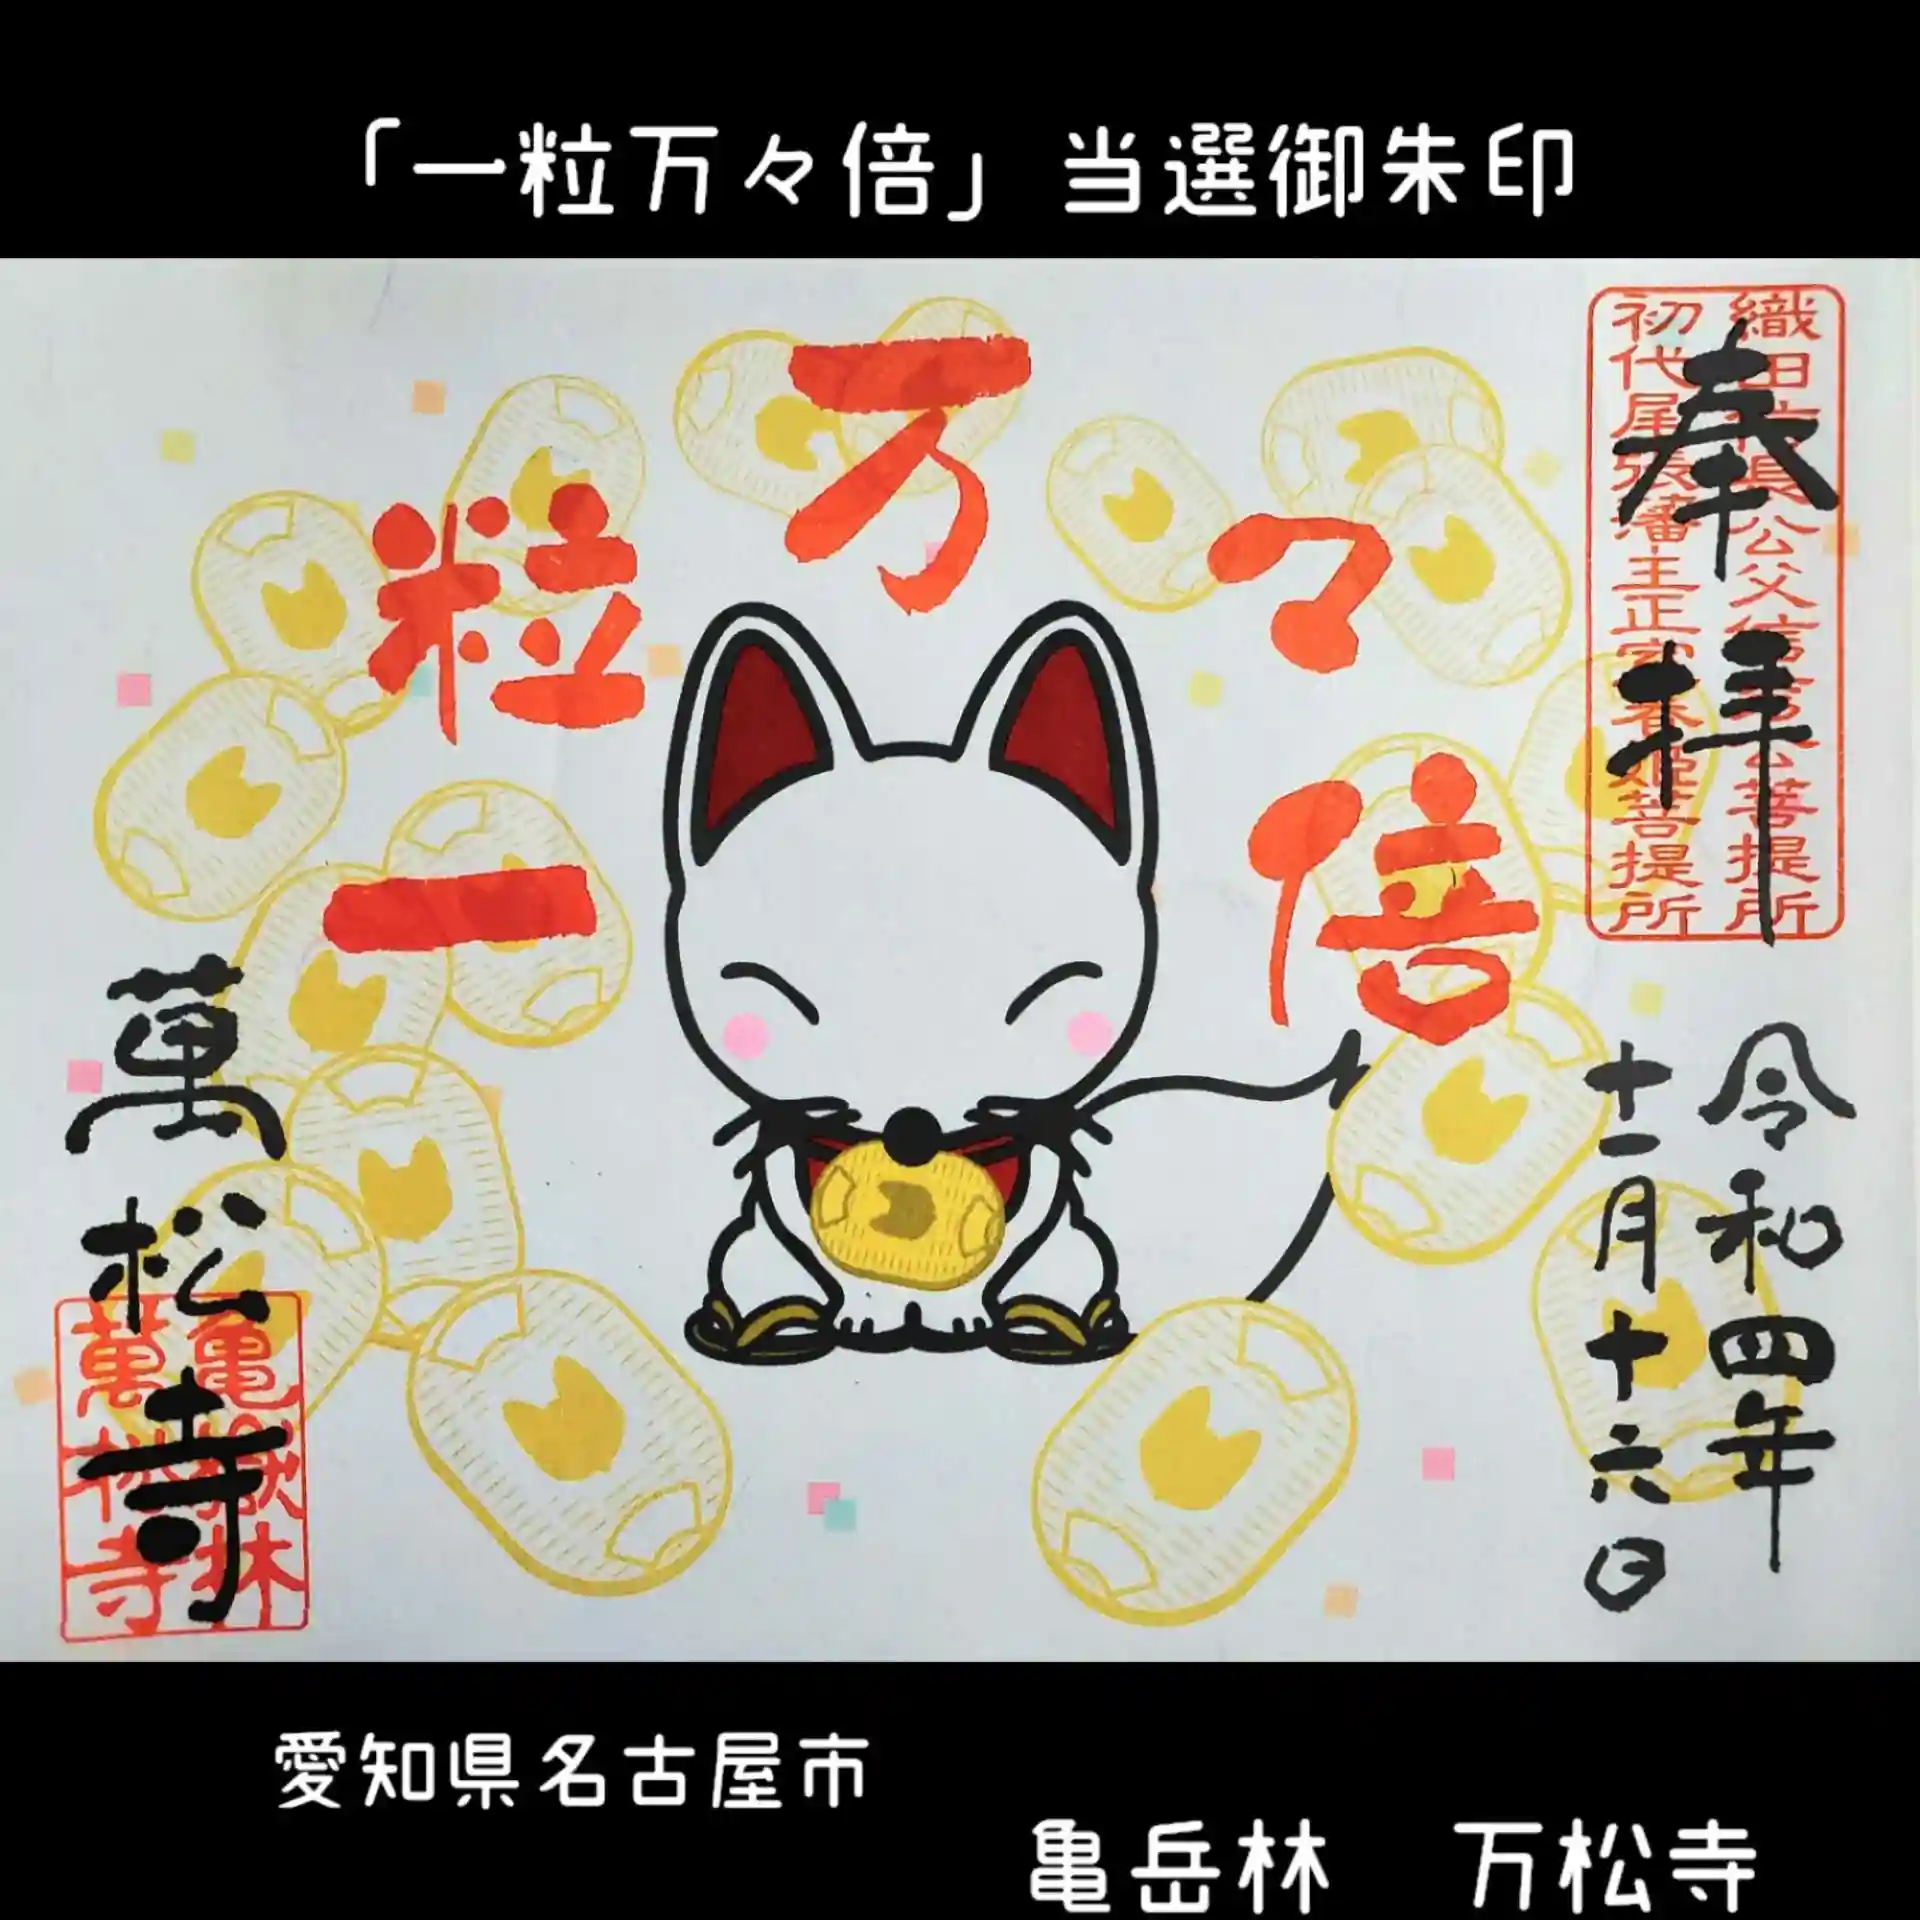 「一粒万々倍」当選御朱印
織田信長公父信秀公菩提所
初代尾張藩主正室春姫菩提所
奉拝
一粒万々倍
令和四年
十一月十六日
萬松寺
亀嶽林
萬松寺
愛知県名古屋市
亀岳林 万松寺